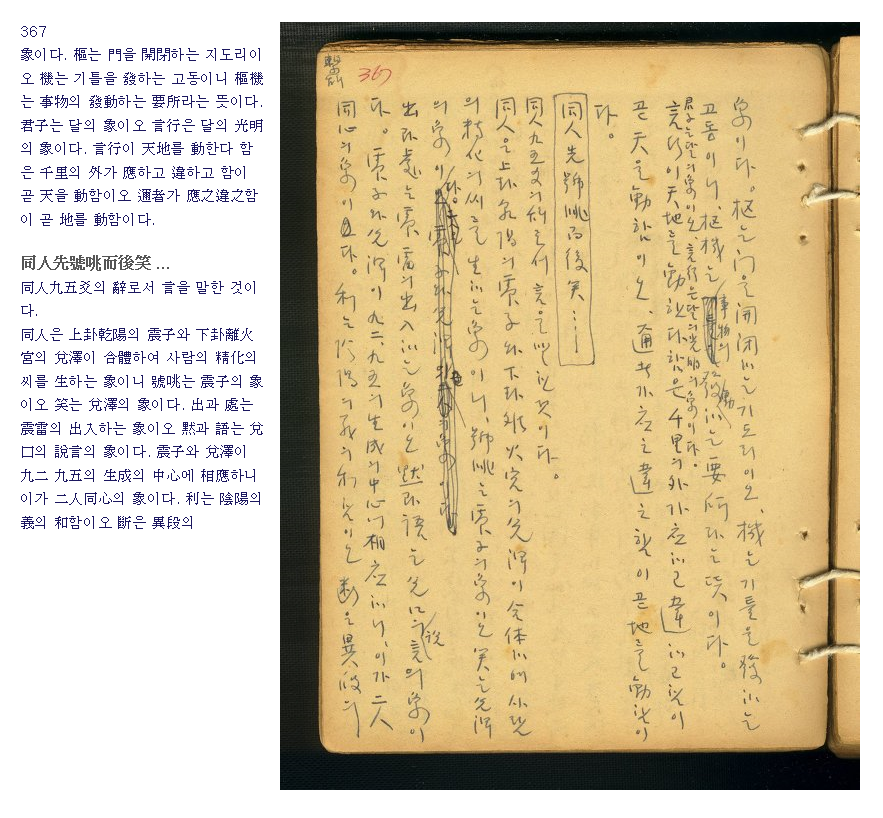 367
象이다. 樞는 門을 開閉하는 지도리이
오 機는 기틀을 發하는 고동이니 樞機
는 事物의 發動하는 要所라는 뜻이다.
君子는 달의 象이오 言行은 달의 光明
의 象이다. 言行이 天地를 動한다 함
은 千里의 外가 應하고 違하고 함이
곧 天을 動함이오 邇者가 應之違之함
이 곧 地를 動함이다.
同人先號咷而後笑 ...
同人九五爻의 辭로서 言을 말한 것이
다.
同人은 上卦乾陽의 震子와 下卦離火
宮의 兌澤이 合體하여 사람의 精化의
씨를 生하는 象이니 號咷는 震子의 象
이오 笑는 兌澤의 象이다. 出과 處는
震雷의 出入하는 象이오 黙과 語는 兌
口의 說言의 象이다. 震子와 兌澤이
九二 九五의 生成의 中心에 相應하니
이가 二人同心의 象이다. 利는 陰陽의
義의 和함이오 斷은 異段의
繫
367
象이다。樞는 门을 開闭하는 지도리이오、機는 기틀을 發하는
고동이니、樞機는 事物의 發動하는 要所라는 뜻이다。
君子는 달의 象이오、言行은 달의 光明의 象이다。
言行이 天地를 動한다 함은 千里의 外가 应하고 違하고 함이
곧 天을 動함이오、邇者가 应之違之함이 곧 地를 動함이
다。
同人先號咷而後笑…
同人九五爻의 辞로서 言을 말한 것이다。
同人은 上卦乾陽의 震子와 下卦離火宮의 兌澤이 合体하여 사람
의 精化의 씨를 生하는 象이니、號咷는 震子의 象이오 笑는 兌澤
의 象이다。
出과 處는 震雷의 出入하는 象이오 默과 語는 兌口의 說言의 象이
다。震子와 兌澤이 九二、九五의 生成의 中心에 相应하니、이가 二人
同心의 象이다。利는 陰陽의 義의 和함이오 斷은 異段의